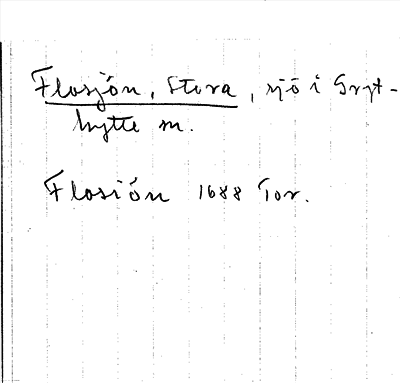 Flosjön, Stora, sjö i Gryt-
hytte sn.
Flosiön 1688 Tor.